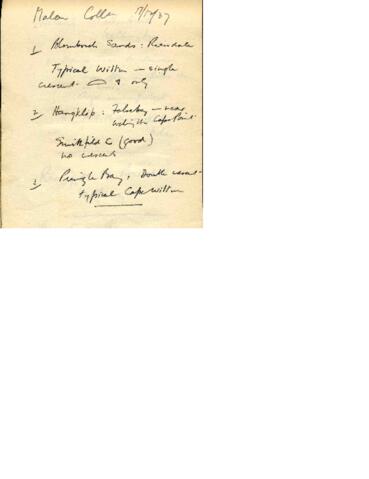 Malan Colln 17/12/37
1 Blombosch Sands : Riversdale
Typical Wilton — single
crescent & only
2 Hangklip : False bay — near
Cape Point
Smithfield C (good)
no crescents
3 Pringle Bay, Double crescent —
typical Cape Wilton